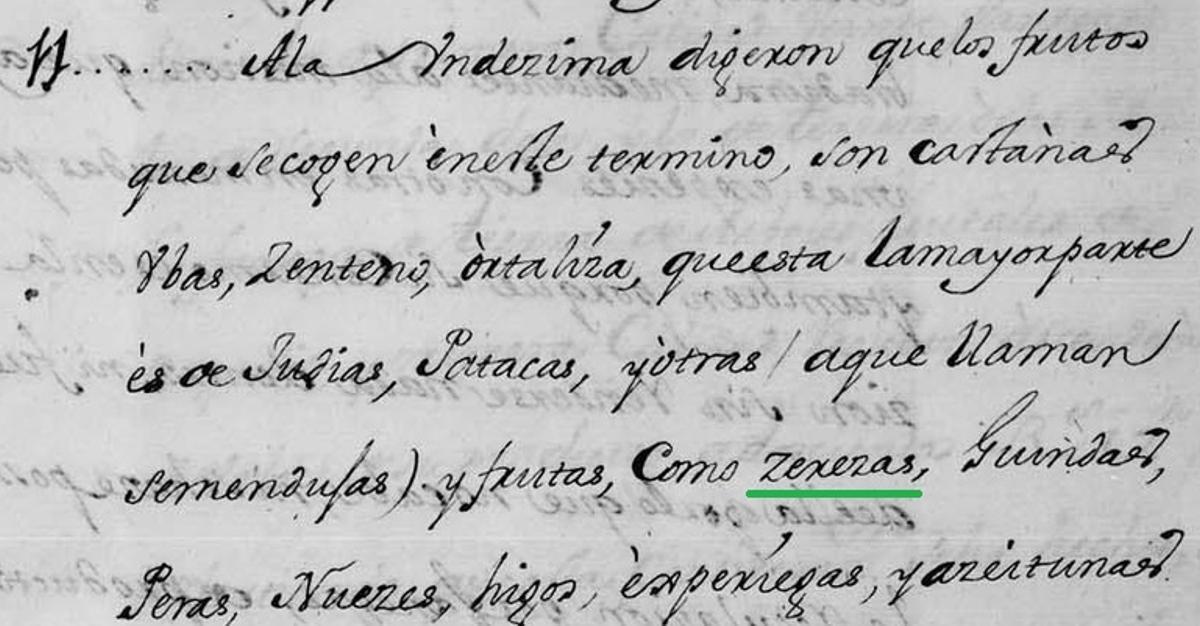 11...... Ala Undezima digeron quelos frutos
que secogen ènesste termino, son castànas
Vbas, Zenteno, òrtaliza, queesta lamayorparte
ès de Judias, Patacas, yòtras / aque llaman
semendusas) y frutas, Como zerezas, Guindas,
Peras, Nuezes, higos, èxperiegas, yazeitunas.